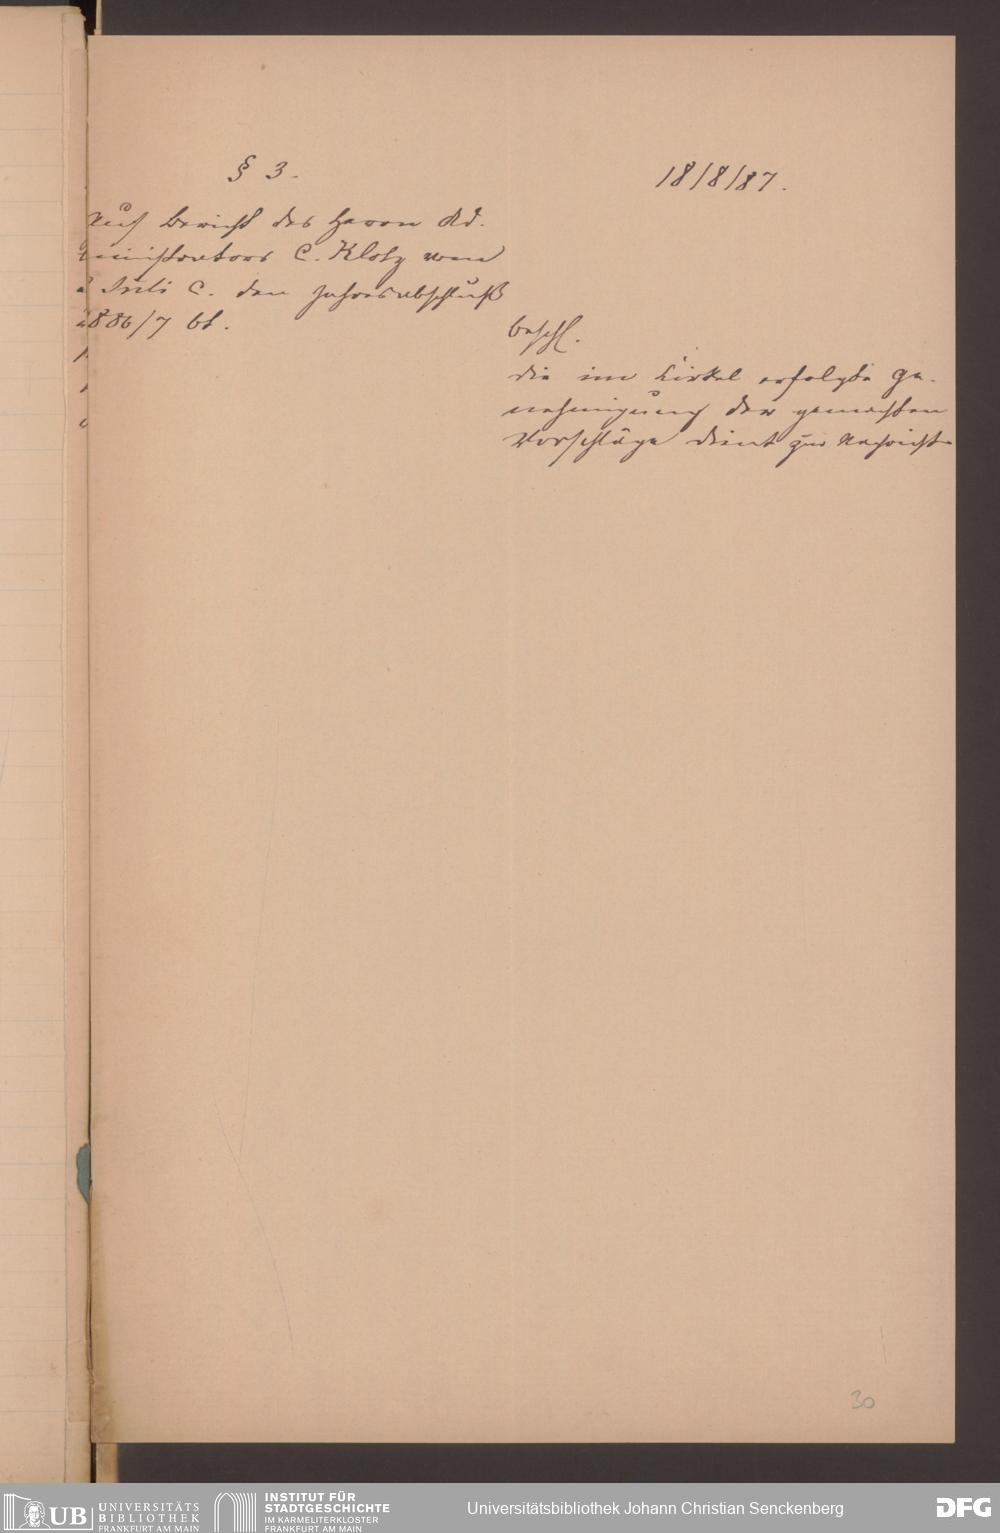 § 3.
18/8/87.
Auf Bericht des Herrn Ad-
ministrators C. Klotz vom
Juli c. den Jahresabschluß
1886/7 bt.
beschl.
die im Cirkel erfolgte Ge-
nehmigung der gemachten
Vorschläge dient zur Nachricht
30
UB UNIVERSITÄTS
BIBLIOTHEK
FRANKFURT AM MAIN
INSTITUT FÜR
STADTGESCHICHTE
IM KARMELITERKLOSTER
FRANKFURT AM MAIN
Universitätsbibliothek Johann Christian Senckenberg
DFG